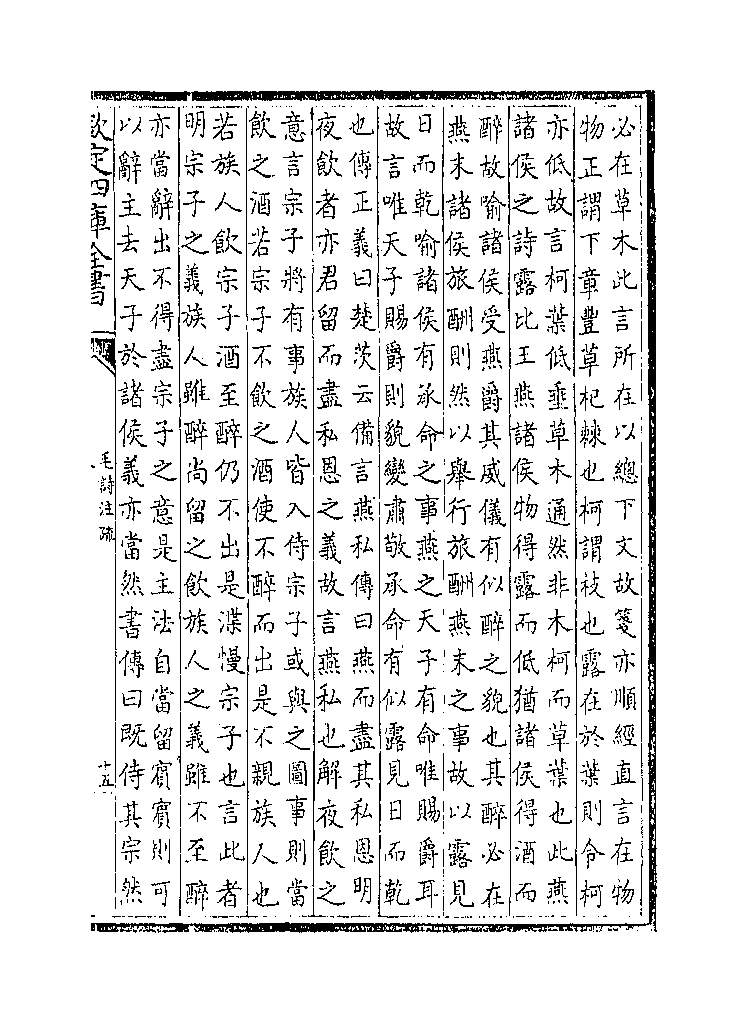 必在草木此言所在以總下文故箋亦順經直言在物
物正謂下章豐草杞棘也柯謂枝也露在於葉則令柯
亦低故言柯葉低垂草木通然非木柯而草葉也此燕
諸侯之詩露比王燕諸侯物得露而低猶諸侯得酒而
醉故喻諸侯受燕爵其威儀有似醉之貌也其醉必在
燕末諸侯旅酬則然以舉行旅酬燕末之事故以露見
日而乾喻諸侯有承命之事燕之天子有命唯賜爵耳
故言唯天子賜爵則貌變肅敬承命有似露見日而乾
也傳正義曰楚茨云備言燕私傳曰燕而盡其私恩明
夜飲者亦君留而盡私恩之義故言燕私也解夜飲之
意言宗子將有事族人皆入侍宗子或與之圖事則當
飲之酒若宗子不飲之酒使不醉而出是不親族人也
若族人飲宗子酒至醉仍不出是渫慢宗子也言此者
明宗子之義族人雖醉尚留之飲族人之義雖不至醉
亦當辭出不得盡宗子之意是主法自當留賓賓則可
以辭主去天子於諸侯義亦當然書傳曰既侍其宗然
欽定四庫全書
毛詩注疏
十五